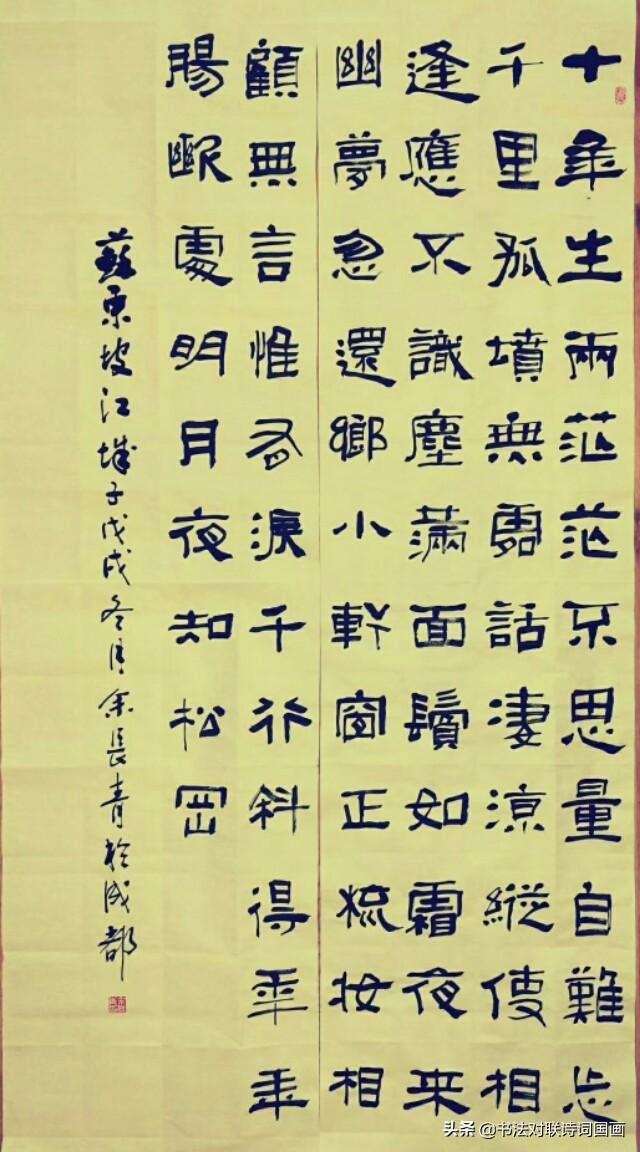 十年生兩茫茫不思量自難忘
千里孤墳無處話淒涼縱使相
逢應不識塵滿面鬢如霜夜来
幽夢忽還鄉小軒窗正梳妆相
顧無言惟有淚千行料得年年
腸断處明月夜知松岡
蘇東坡江城子戊戌冬月余長青於成都
头条 @书法对联诗词国画